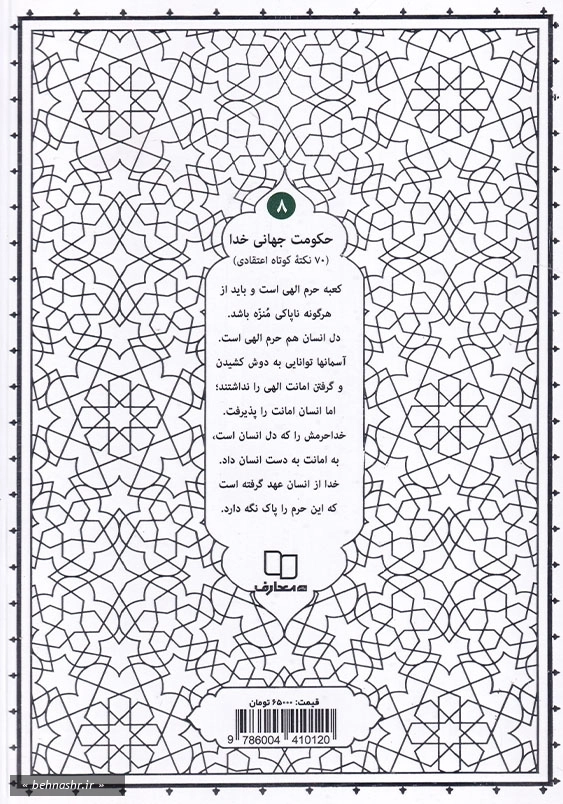 ۸
حکومت جهانی خدا
(۷۰ نکتهٔ کوتاه اعتقادی)
کعبه حرم الهی است و باید از
هرگونه ناپاکی مُنزّه باشد.
دل انسان هم حرم الهی است.
آسمانها توانایی به دوش کشیدن
و گرفتن امانت الهی را نداشتند؛
اما انسان امانت را پذیرفت.
خداحرمش را که دل انسان است،
به امانت به دست انسان داد.
خدا از انسان عهد گرفته است
که این حرم را پاک نگه دارد.
معارف
قیمت: ۶۵۰۰۰ تومان
9 786004 410120
« behnashr.ir »